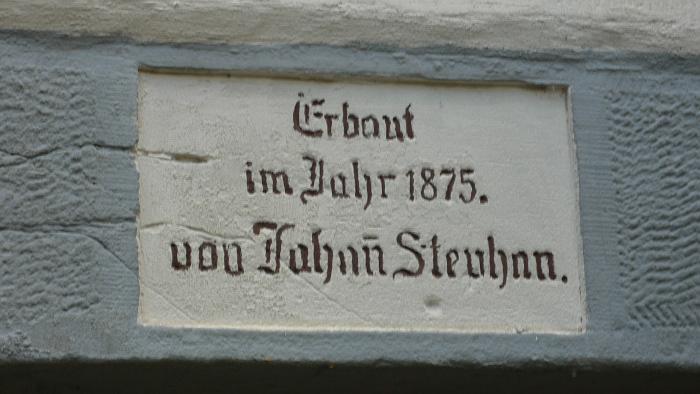 Erbaut
im Jahr 1875.
von Johan̄ Stephan.